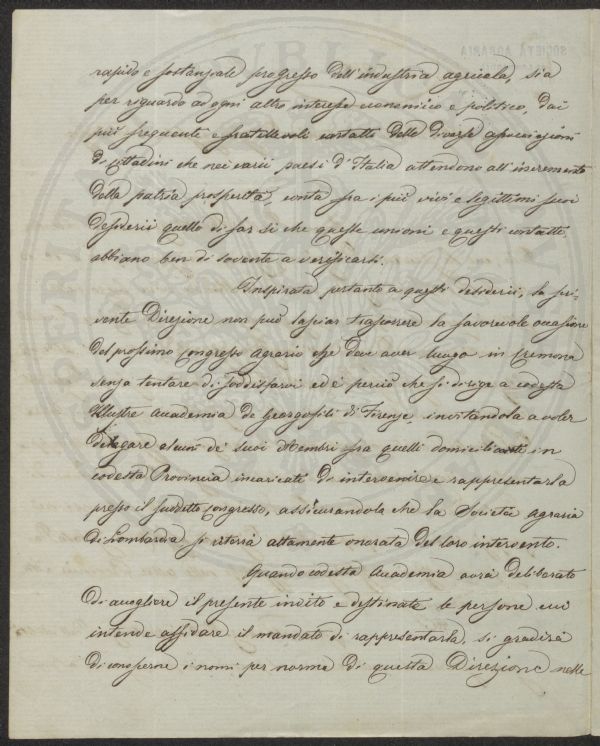 rapido e sostanziale progresso dell'industria agricola, sia
per riguardo ad ogni altro interesse economico e politico, dai
più frequenti e fratellevoli contatti delle diverse associazioni
di cittadini che nei varii paesi d'Italia attendono all'incremento
della patria prosperità, conta fra i più vivi e legittimi suoi
desiderii quello di far sì che queste unioni e questi contatti
abbiano ben di sovente a verificarsi.
Inspirata pertanto a questi desiderii, la scri-
vente Direzione non può lasciar trascorrere la favorevole occasione
del prossimo Congresso Agrario che deve aver luogo in Cremona
senza tentare di soddisfarvi ed è perciò che si dirige a codesta
Illustre Accademia de Georgofili di Firenze, invitandola a voler
delegare alcuni de' suoi Membri fra quelli domiciliati in
codesta Provincia incaricati di intervenire e rappresentarla
presso il suddetto Congresso, assicurandola che la Società Agraria
di Lombardia si terrà altamente onorata del loro intervento.
Quando codesta Accademia avrà deliberato
di accogliere il presente invito e destinate le persone cui
intende affidare il mandato di rappresentarla, si gradirà
di conoscerne i nomi per norma di questa Direzione nelle
SOCIETÀ AGRARIA